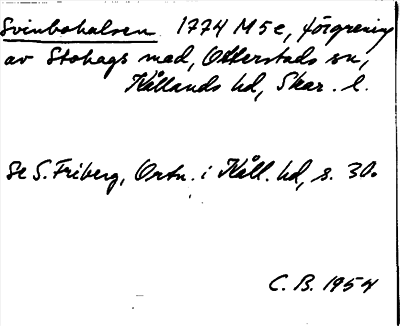 Svinbohalsen 1774 M5c, förgrening
av Stohags mad, Otterstads sn,
Kållands hd, Skar. l.
Se S. Friberg, Ortn. i Kåll. hd, s. 30.
C. B. 1954